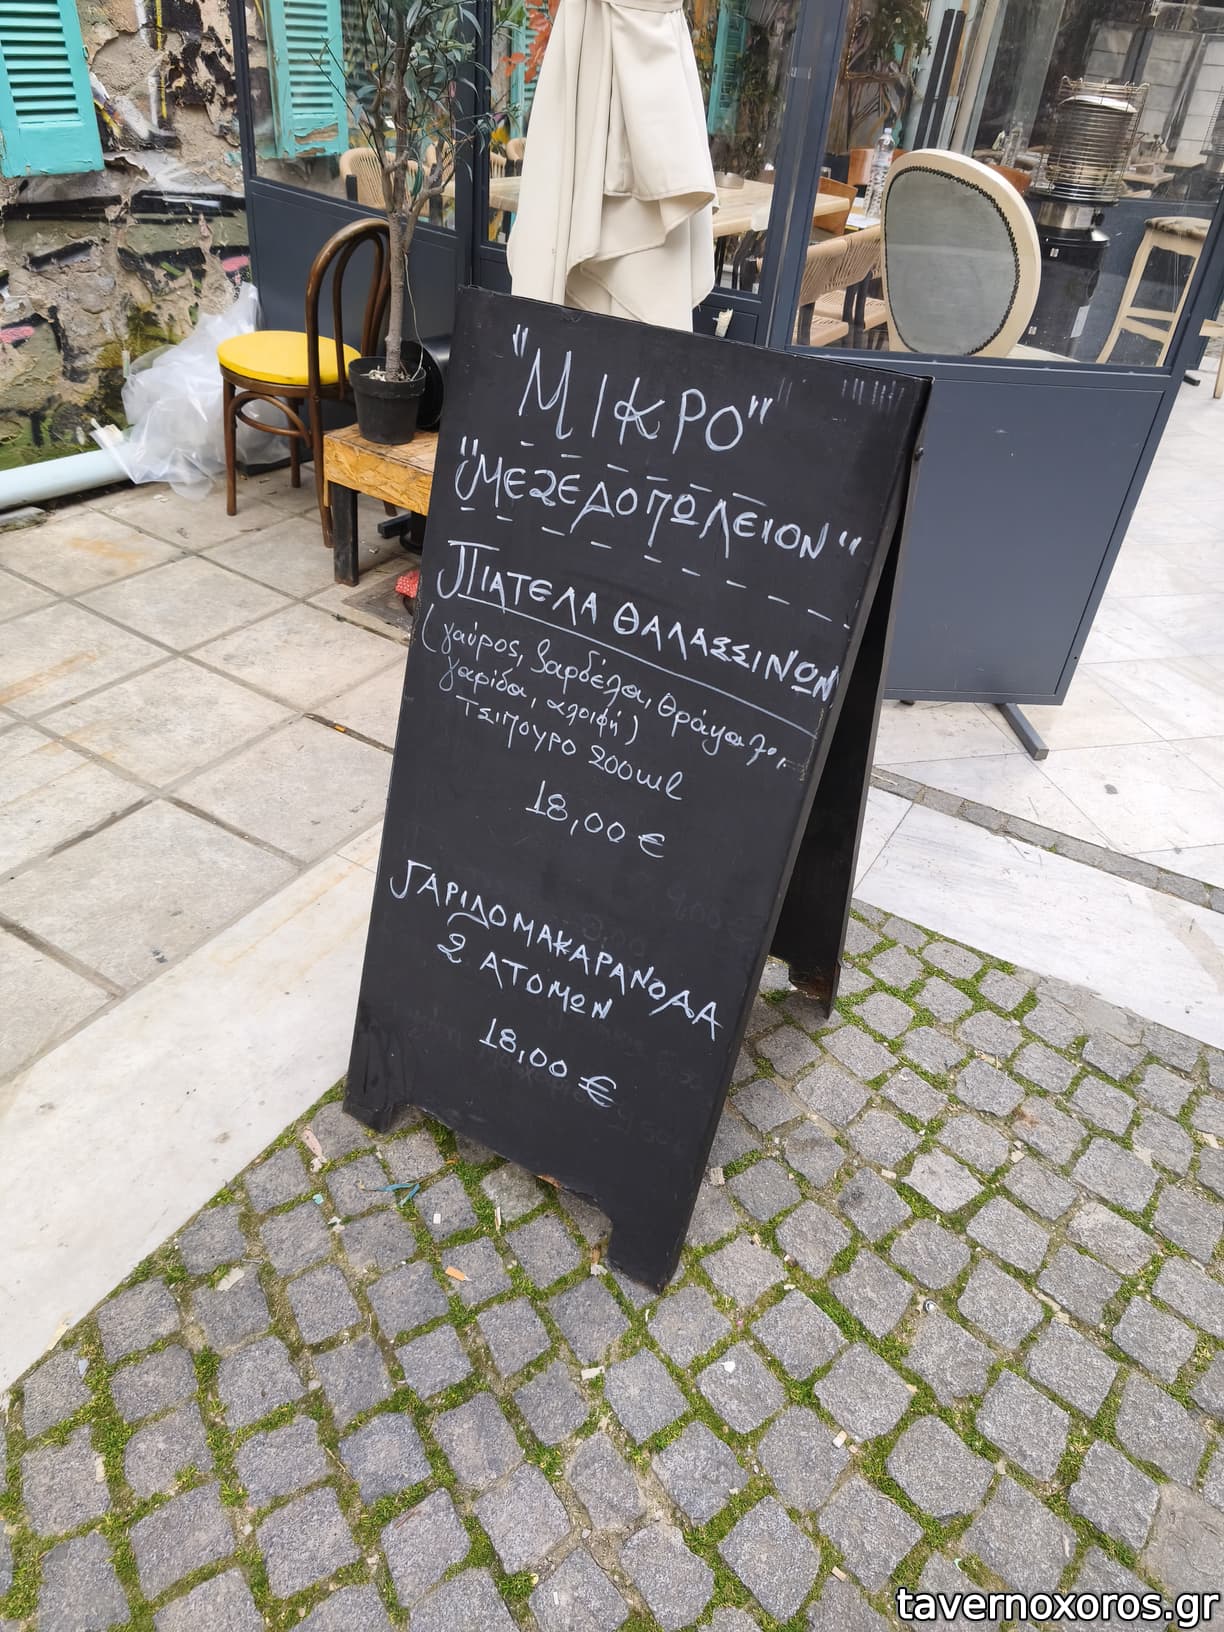 "ΜΙΚΡΟ"
"ΜΕΖΕΔΟΠΩΛΕΙΟΝ"
ΠΙΑΤΕΛΑ ΘΑΛΑΣΣΙΝΩΝ
(γαύρος, σαρδέλα, θράψαλο,
γαρίδα, αλοιφή)
ΤΣΙΠΟΥΡΟ 200ml
18,00 €
ΓΑΡΙΔΟΜΑΚΑΡΟΝΑΔΑ
2 ΑΤΟΜΩΝ
18,00 €
tavernoxoros.gr